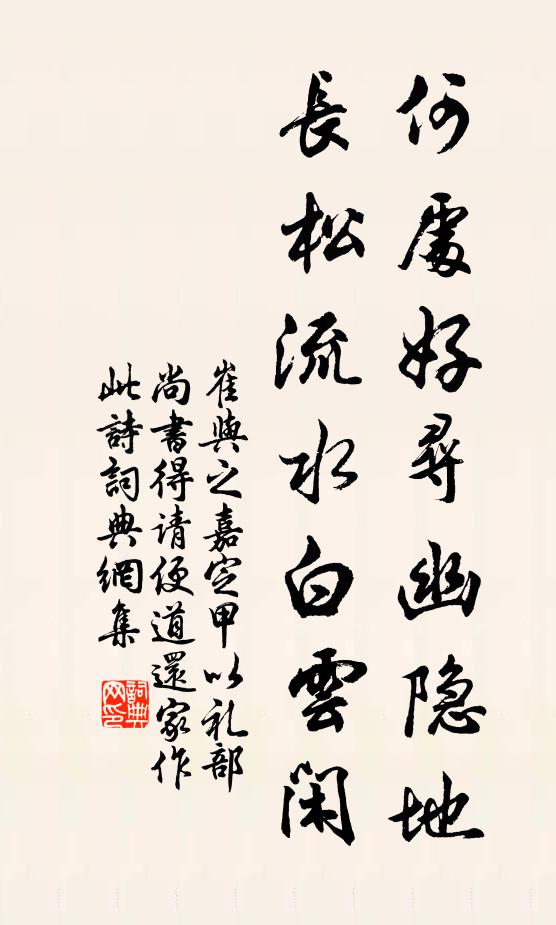 何處好尋幽隐地
長松流水白雲閑
崔與之嘉定甲以礼部
尚書得请便道還家作
此詩詞典網集
詞典
网印